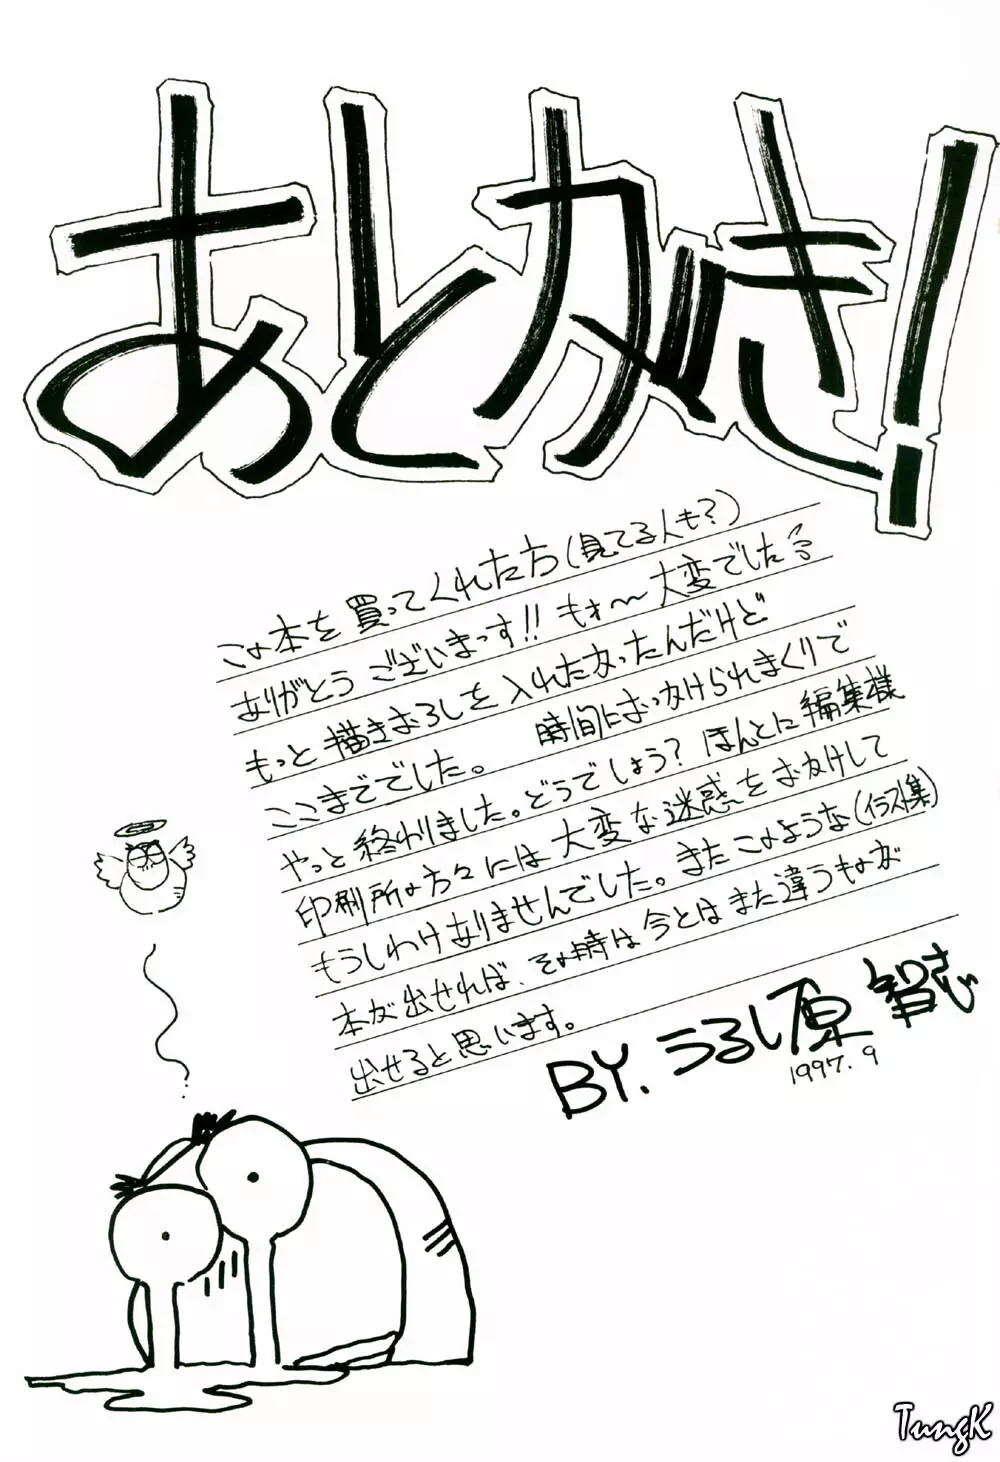 あとがき!
この本を買ってくれた方(見てる人も?)
ありがとうございまっす!! もォ〜大変でした
もっと描きおろしを入れたかったんだけど
ここまででした。 時間におっかけられまくりで
やっと終わりました。どうでしょう? ほんとに編集様
印刷所の方々には大変な迷惑をおかけして
もうしわけありませんでした。またこのような(イラスト集)
本が出せれば、その時は今とはまた違うものが
出せると思います。
BY. うるし原 智志
さとし
1997. 9
TungK